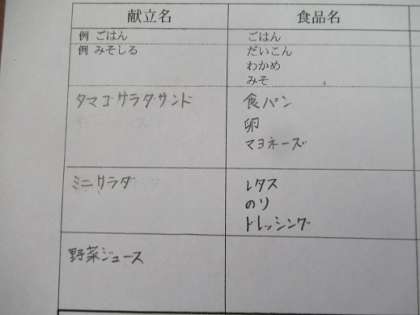 献立名 食品名
例 ごはん ごはん
例 みそしる だいこん
わかめ
みそ
タマゴサラダサンド 食パン
卵
マヨネーズ
ミニサラダ レタス
のり
ドレッシング
野菜ジュース